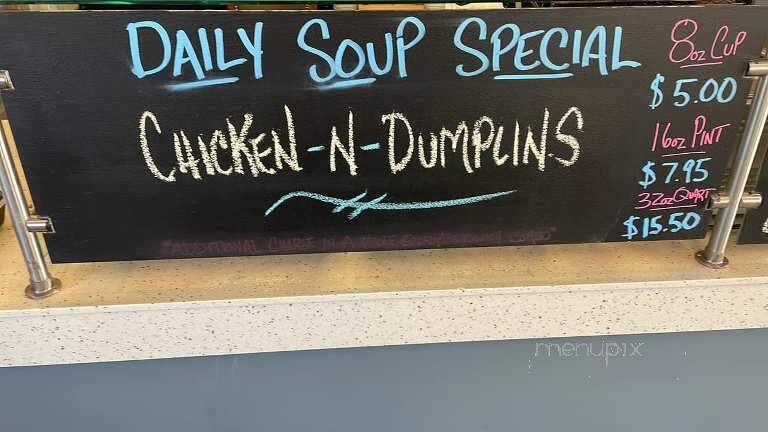 DAILY SOUP SPECIAL
CHICKEN-N-DUMPLINS
8oz CUP
$5.00
16oz PINT
$7.95
32oz QUART
$15.50
"ADDITIONAL
menupix